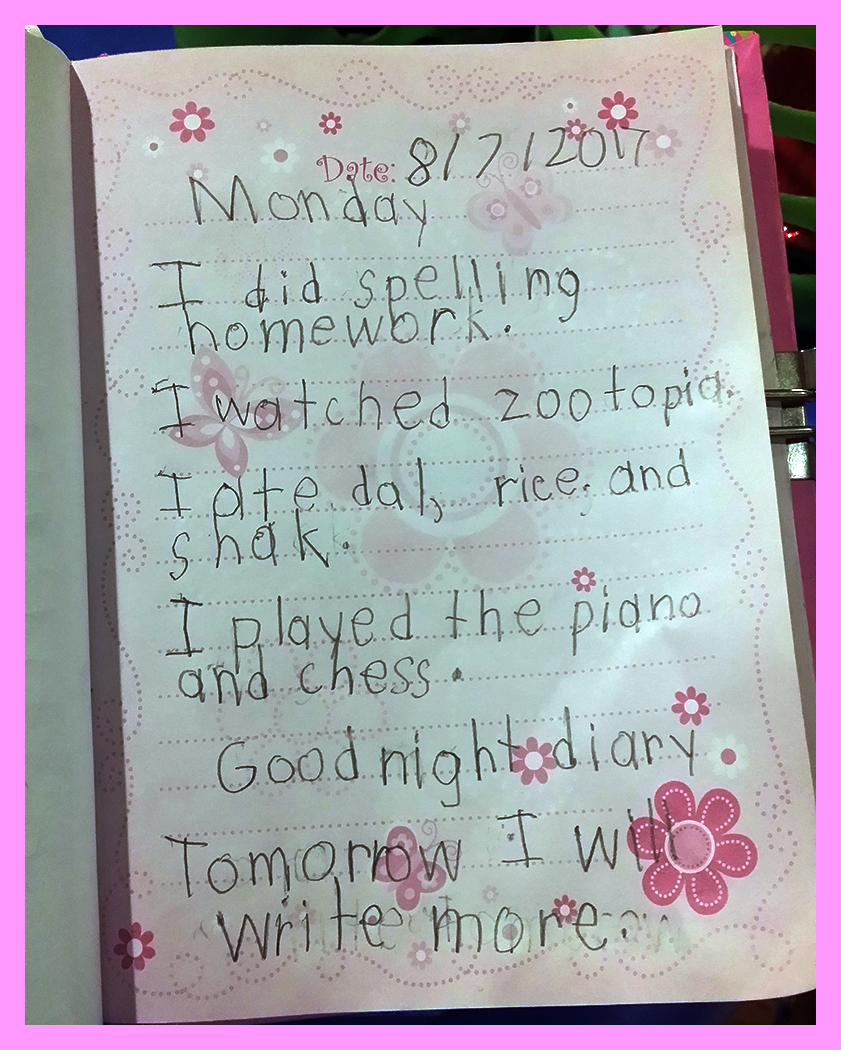 Date: 8/7/2017
Monday
I did spelling
homework.
I watched zootopia.
I ate dal, rice, and
shak.
I played the piano
and chess.
Good night diary
Tomorrow I will
write more.